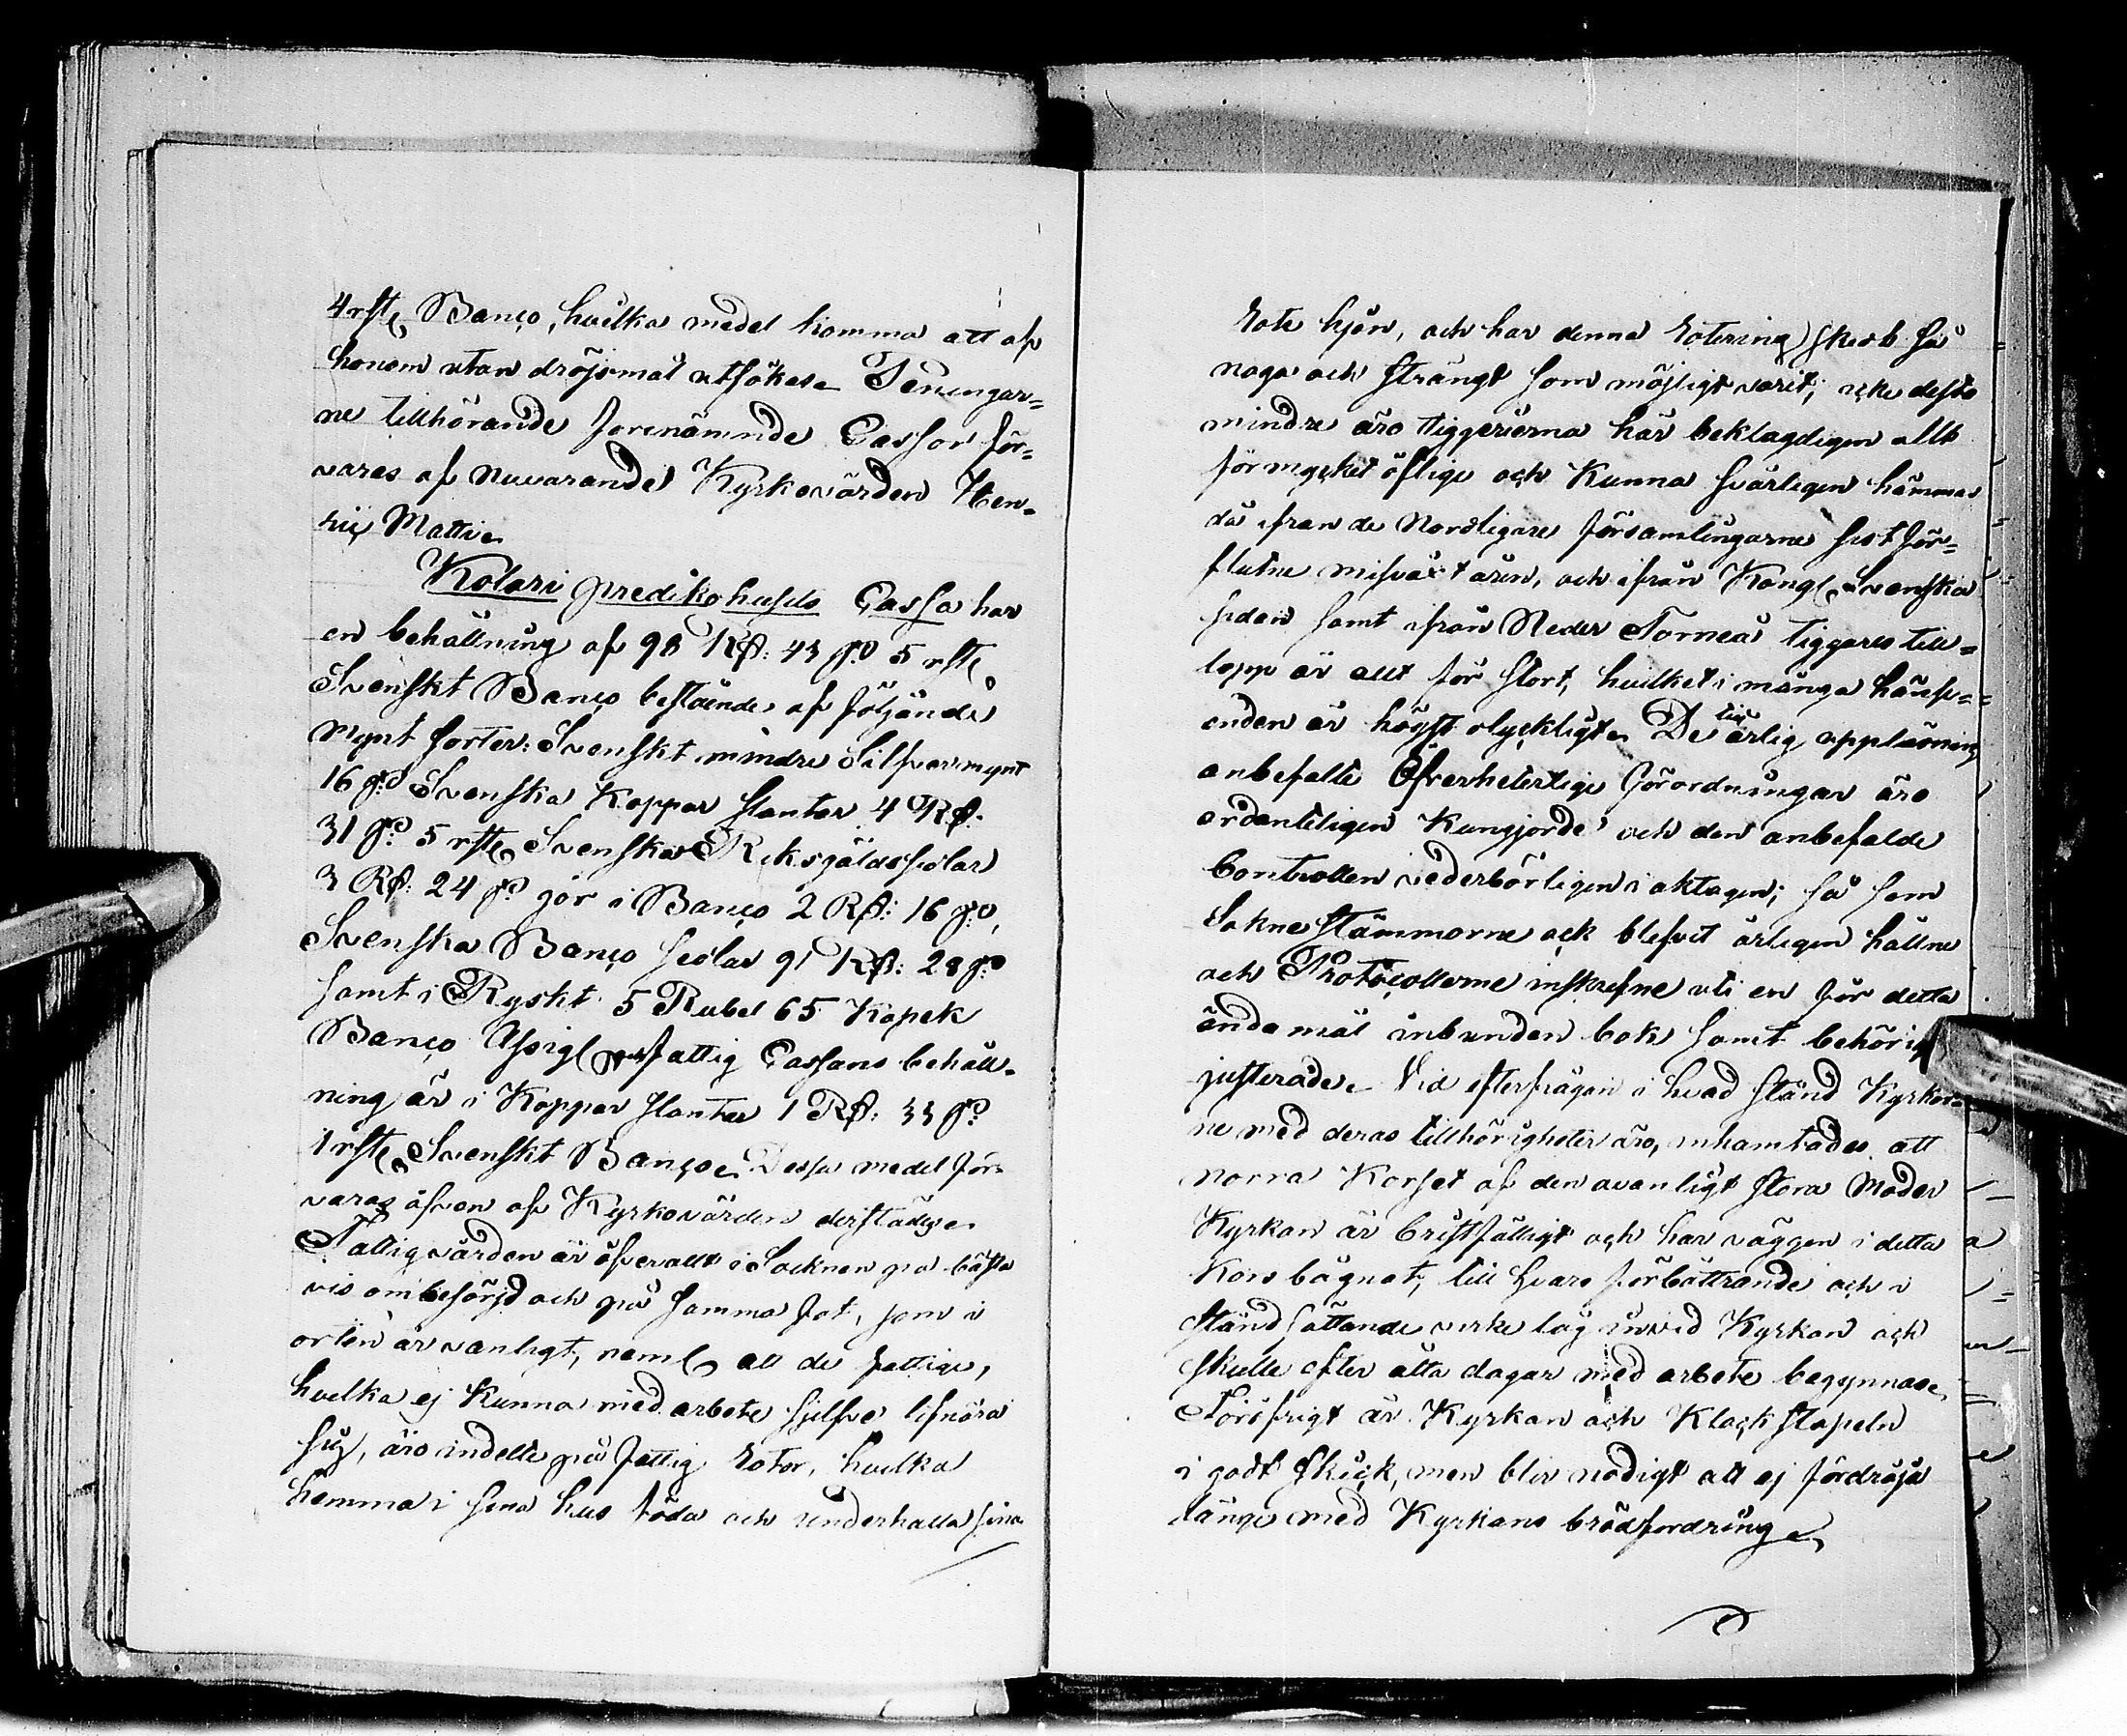 4 rst. Banco, hvilka medel komma att af
honom utan dröjsmål utsökas. Penningar=
ne tillhörande förenämnde Cassor för=
varas af nuvarande Kyrkovärden Hen=
ric Matti.
Kolari predikohusets Cassa har
en behållning af 98 R:ß: 43 ß: 5 rst.
Svenskt Banco bestående af följande
mynt sorter: Svenskt mindre Silfvermynt
16 ß: Svenska Koppar slantar 4 Rß:
31 ß: 5 rst. Svenska Riksgäldssedlar
3 Rß: 24 ß: gör i Banco 2 Rß: 16 ß:,
Svenska Banco sedlar 91 Rß: 28 ß:
samt i Ryskt 5 Rubel 65 Kopek
Banco Assign. Fattig Cassans behåll=
ning är i Koppar slantar 1 Rß: 33 ß:
1 rst. Svenskt Banco. Dessa medel för=
varas äfven af Kyrkovärden derstädes.
Fattigvården är öfverallt i Socknen på bästa
vis ombesörjd och på samma fot, som i
orten är vanligt, neml. att de fattige,
hvilka ej kunna med arbete sjelfve lifnära
sig, äro indelte på fattig rotar, hvilka
hemma i sina hus föda och underhålla sina
rote hjon, och har denna rotering skedt så
noga och strängt som möjligt varit; icke desto
mindre äro tiggerierna här beklagligen allt
för mycket öflige och kunna svårligen hämmas
då ifrån de Nordligare församlingarne sist för=
flutne missväxt åren, och ifrån Kongl. Svenska
sidan samt ifrån Neder Torneå tiggares till=
lopp är allt för stort, hvilket i många hänse=
enden är högst olyckligt. De till årlig uppläsning
anbefallte Öfverhetelige Förordningar äro
ordenteligen kungjorde och den anbefalde
Controllen vederbörligen i akttagen; så som
Sokne Stämmorne ock blifvit årligen hållne
och Protocollerne inskrefne uti en för detta
ändamål inbunden bok samt behörig
justerade. Vid efterfrågan i hvad stånd Kyrkor=
ne med deras tillhörigheter äro, inhämtades att
norra Korset af den ovanligt stora Moder
Kyrkan är bristfälligt och har väggen i detta
Kors bågnat, till hvars förbättrande och i
stånd sättande virke låg invid Kyrkan och
skulle efter åtta dagar med arbete begynnas.
Föröfrigt är Kyrkan och Klockstapeln
i godt skick, men blir nödigt att ej fördröja
länge med Kyrkans brädfordring.